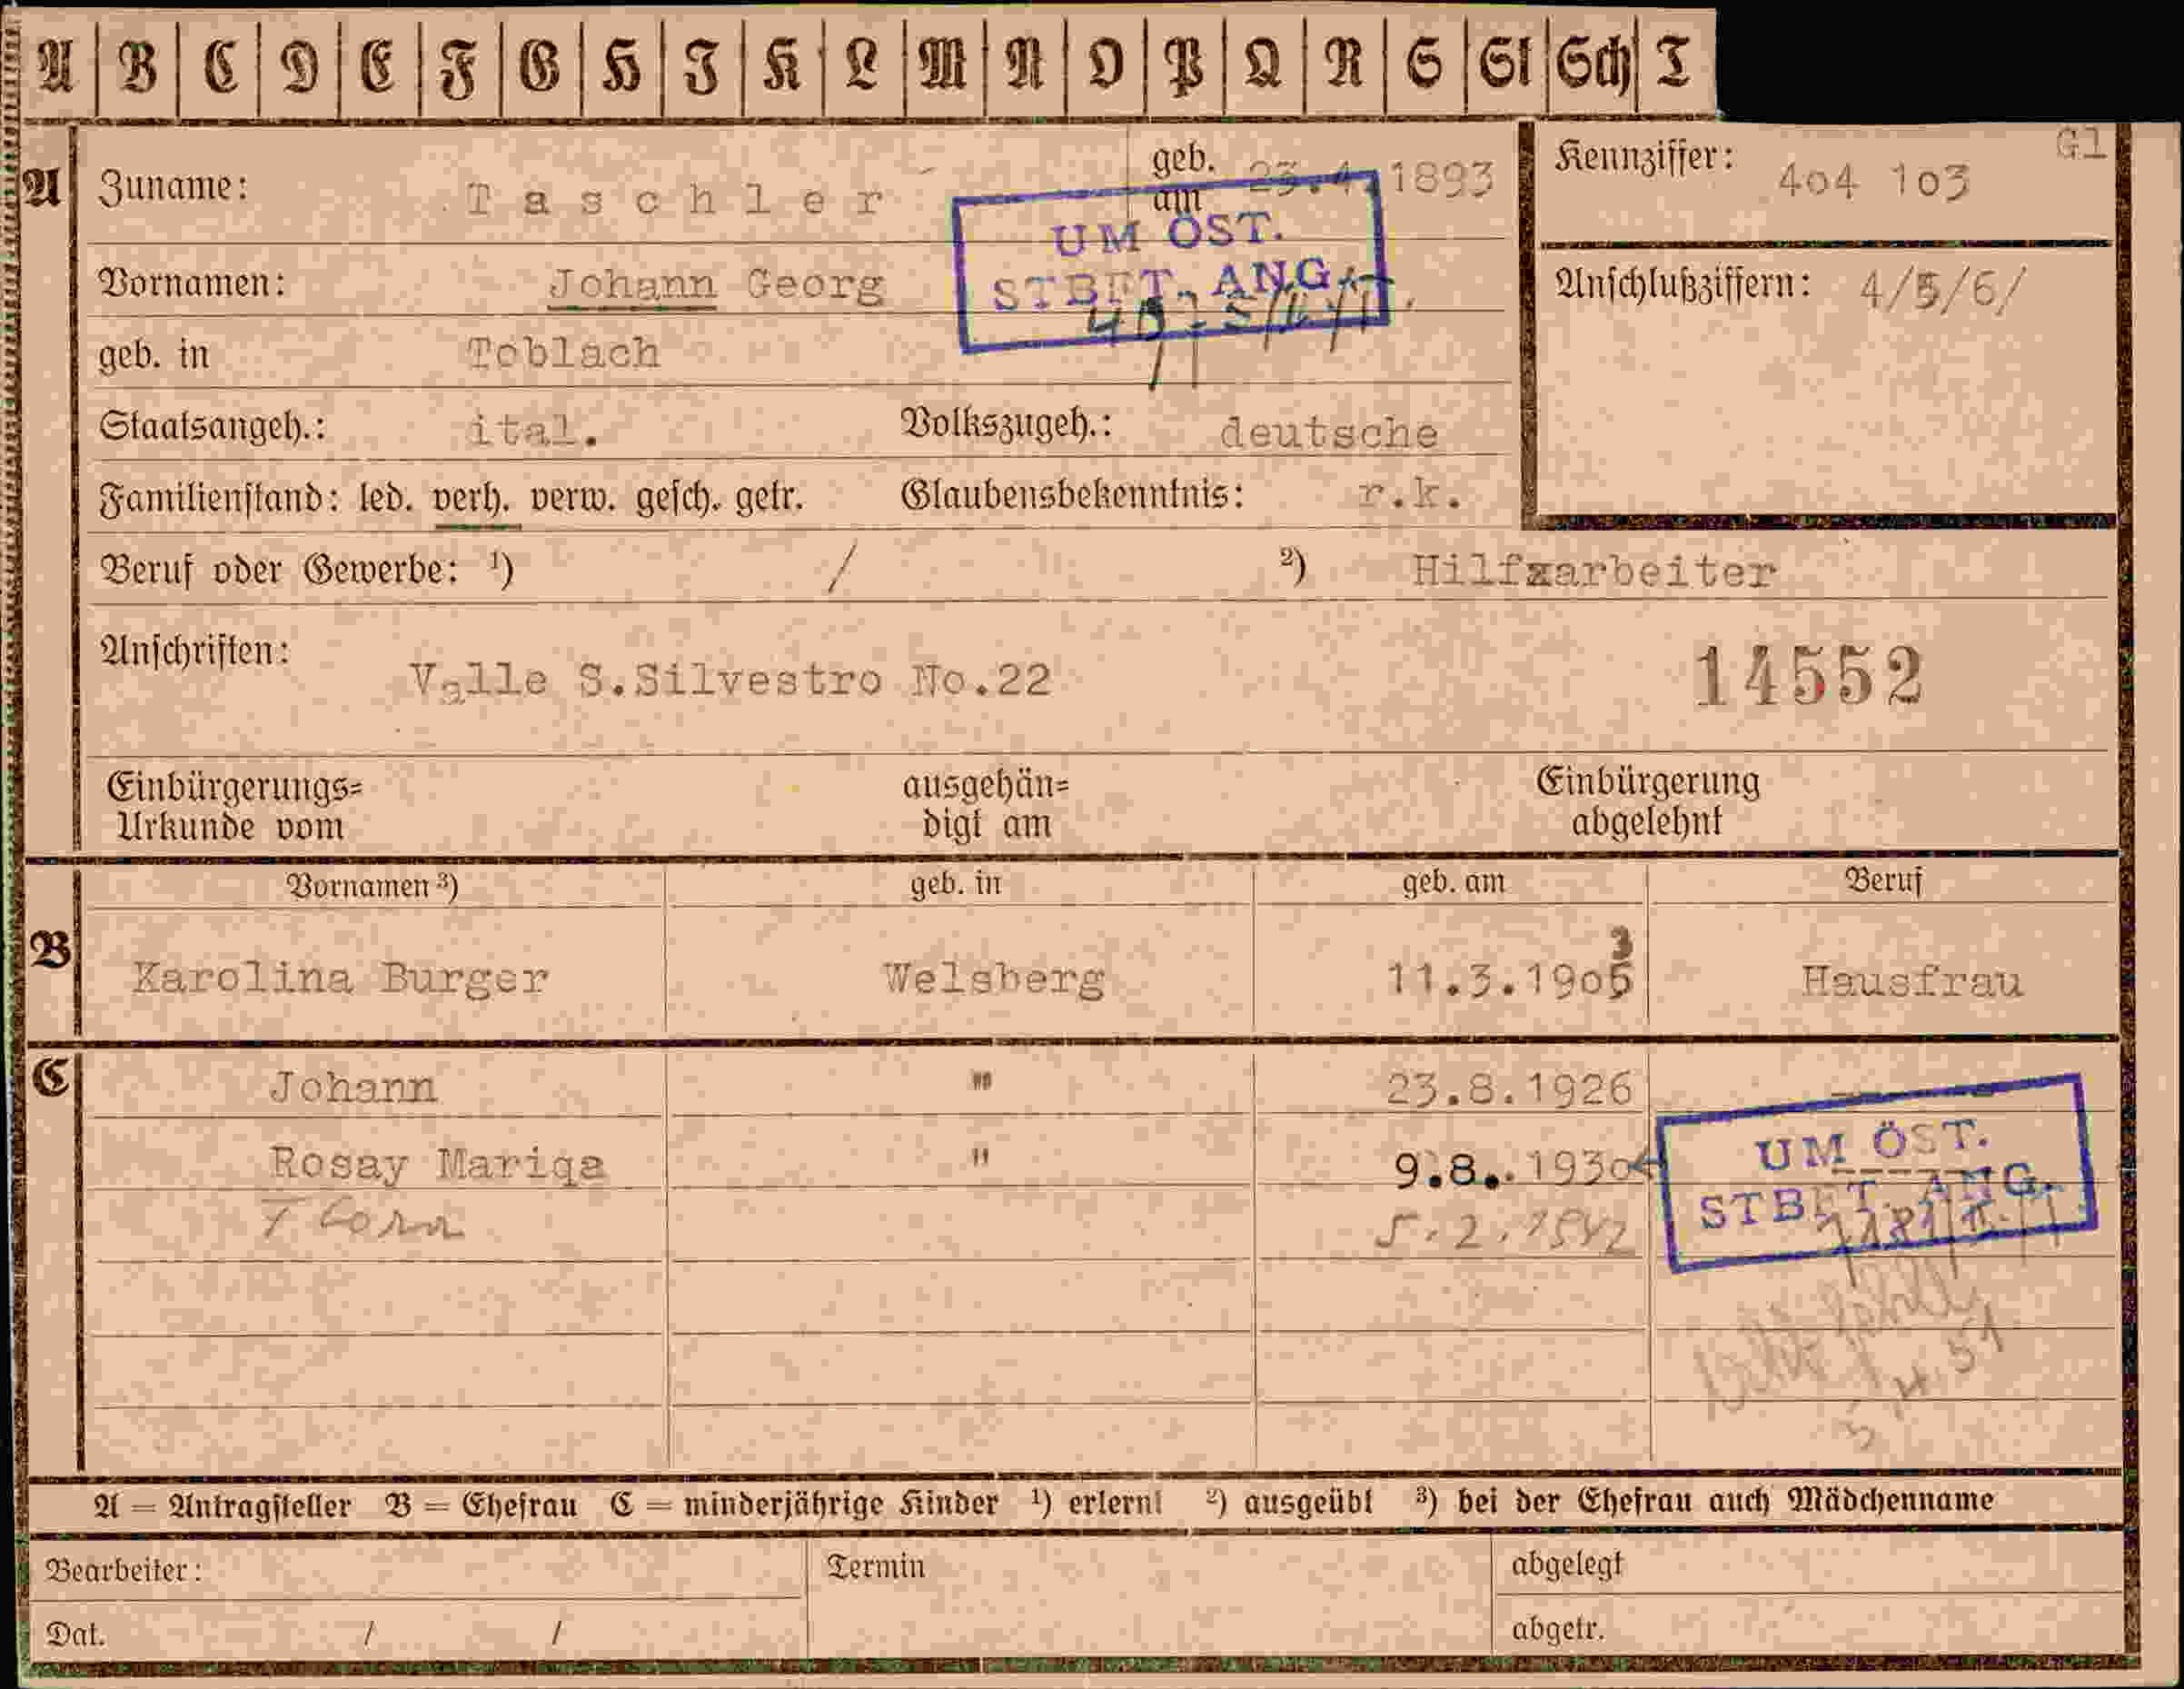 A B C D E F G H I K L M N O P Q R S St Sch T
A Zuname: Taschler geb. am 23.4.1893 Kennziffer: 404 103 G1
UM ÖST. STBFT. ANG.
Vornamen: Johann Georg Anschlußziffern: 4/5/6/
geb. in Toblach
Staatsangeh.: ital. Volkszugeh.: deutsche
Familienstand: led. verh. verw. gesch. getr. Glaubensbekenntnis: r.k.
Beruf oder Gewerbe: ¹) / ²) Hilfxarbeiter
Anschriften: Valle S.Silvestro No.22 14552
Einbürgerungs= ausgehän= Einbürgerung
Urkunde vom digt am abgelehnt
Vornamen ³) geb. in geb. am Beruf
B Karolina Burger Welsberg 11.3.1905 3 Hausfrau
C Johann " 23.8.1926
Rosay Mariqa " 9.8..1930
UM ÖST.
STBFT. ANG.
5.2.1942
5.4.51
A = Antragsteller B = Ehefrau C = minderjährige Kinder ¹) erlernt ²) ausgeübt ³) bei der Ehefrau auch Mädchenname
Bearbeiter: Termin abgelegt
Dat. / / abgetr.